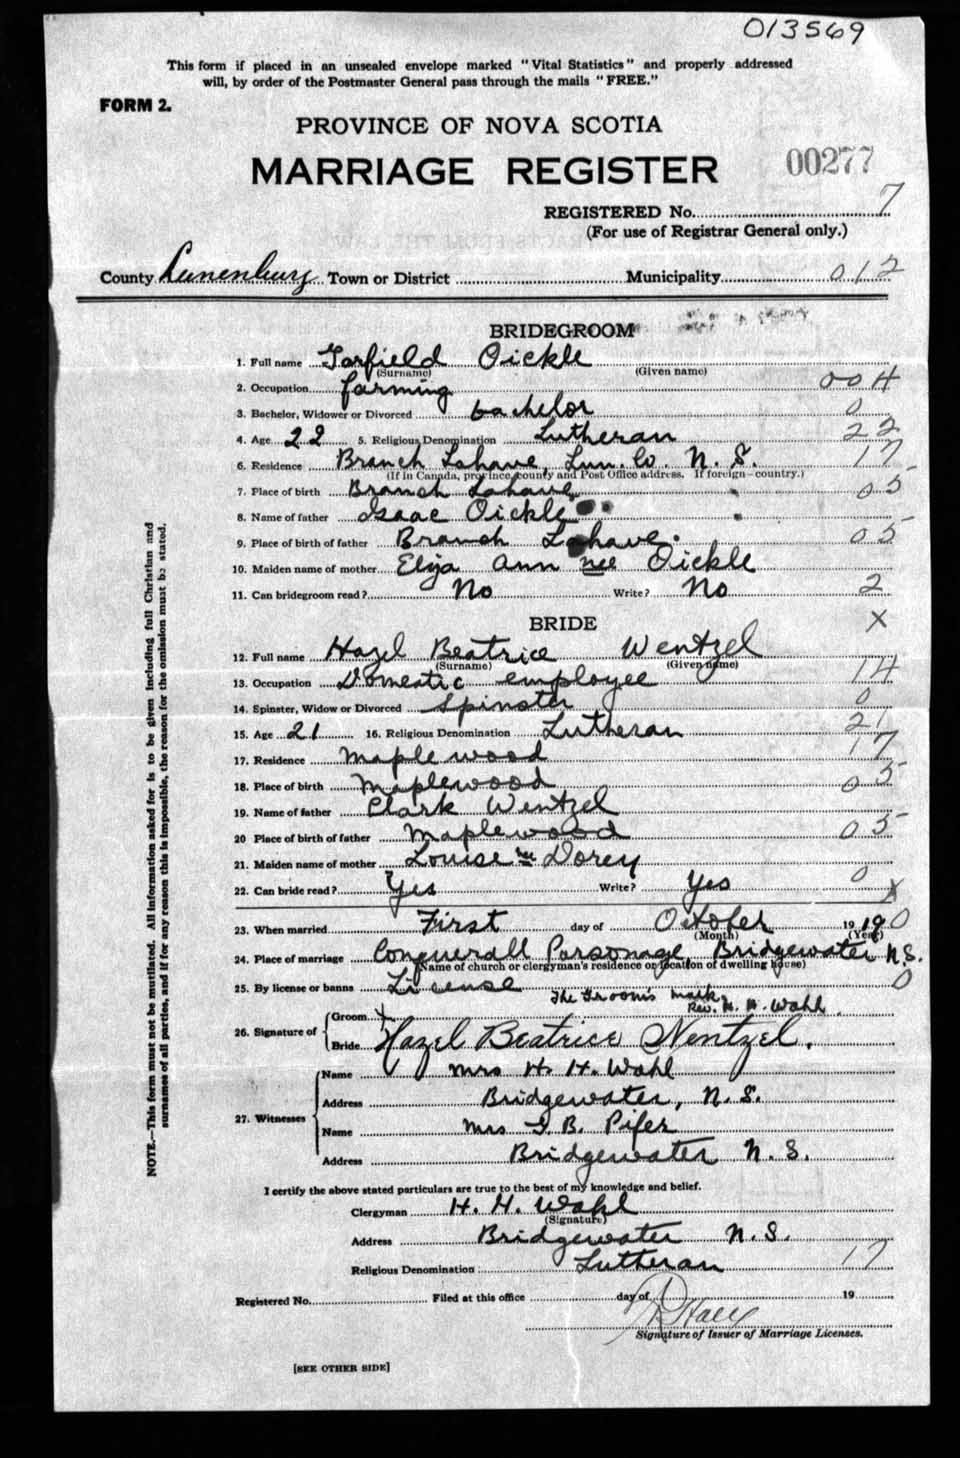 013569
This form if placed in an unsealed envelope marked "Vital Statistics" and properly addressed
will, by order of the Postmaster General pass through the mails "FREE."
FORM 2.
PROVINCE OF NOVA SCOTIA
MARRIAGE REGISTER 00277
REGISTERED No. 7
(For use of Registrar General only.)
County Lunenburg Town or District Municipality 012
BRIDEGROOM
1. Full name Garfield Oickle
(Surname) (Given name)
2. Occupation farming 004
3. Bachelor, Widower or Divorced bachelor 0
4. Age 22 5. Religious Denomination Lutheran 22
6. Residence Branch Lahave, Lun. Co. N. S. 17
(If in Canada, province, county and Post Office address. If foreign—country.)
7. Place of birth Branch Lahave 05
8. Name of father Isaac Oickle
9. Place of birth of father Branch Lahave. 05
10. Maiden name of mother Eliza Ann nee Oickle
11. Can bridegroom read? No Write? No 2
BRIDE X
12. Full name Hazel Beatrice Wentzel
(Surname) (Given name)
13. Occupation Domestic employee 14
14. Spinster, Widow or Divorced Spinster 0
15. Age 21 16. Religious Denomination Lutheran 21
17. Residence Maplewood 17
18. Place of birth Maplewood 05
19. Name of father Clark Wentzel
20 Place of birth of father Maplewood 05
21. Maiden name of mother Louise nee Dorey
22. Can bride read? Yes Write? Yes 0
X
23. When married First day of October 19 19 0
(Month) (Year)
24. Place of marriage Conquerall Parsonage, Bridgewater N.S.
(Name of church or clergyman's residence or location of dwelling house)
25. By license or banns License 0
The Groom's mark
Rev. H. H. Wahl
26. Signature of Groom X
Bride Hazel Beatrice Wentzel.
27. Witnesses
Name Mrs H. H. Wahl
Address Bridgewater, N. S.
Name Mrs G. B. Pifer
Address Bridgewater N. S.
I certify the above stated particulars are true to the best of my knowledge and belief.
Clergyman H. H. Wahl
(Signature)
Address Bridgewater N. S.
Religious Denomination Lutheran 17
Registered No. Filed at this office day of 19
Signature of Issuer of Marriage Licenses.
[SEE OTHER SIDE]
NOTE.—This form must not be mutilated. All information asked for is to be given including full Christian and
surnames of all parties, and if for any reason this is impossible, the reason for the omission must be stated.